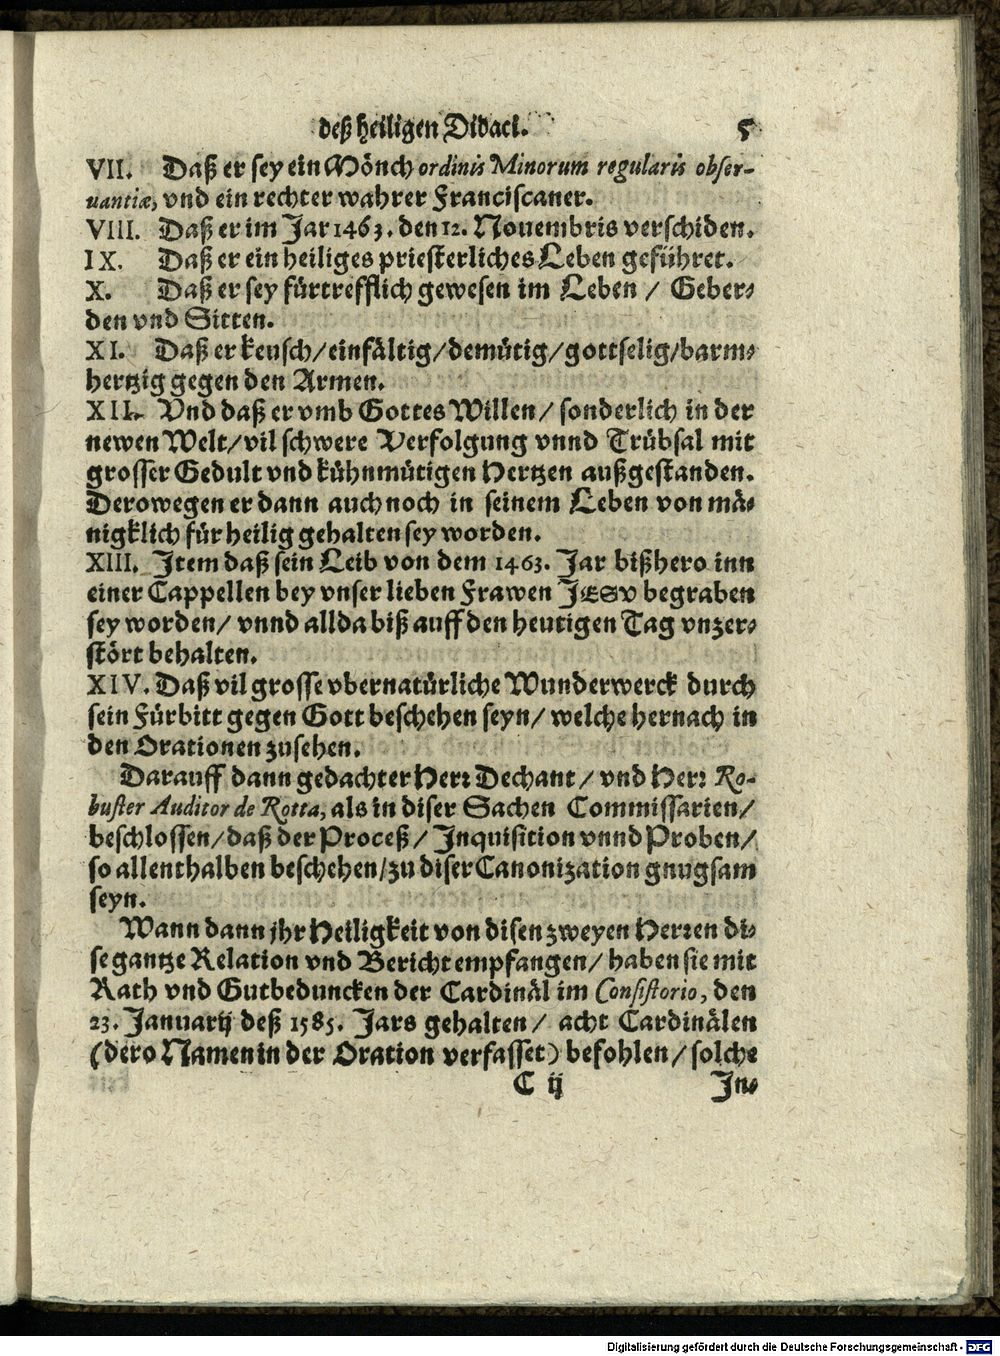 deß heiligen Didaci. 5
VII. Daß er sey ein Mönch ordinis Minorum regularis obser-
uantiæ, vnd ein rechter wahrer Franciscaner.
VIII. Daß er im Jar 1463. den 12. Nouembris verschiden.
IX. Daß er ein heiliges priesterliches Leben geführet.
X. Daß er sey fürtrefflich gewesen im Leben / Geber-
den vnd Sitten.
XI. Daß er keusch/einfältig/demütig/gottselig/barm-
hertzig gegen den Armen.
XII. Vnd daß er vmb Gottes Willen/ sonderlich in der
newen Welt/vil schwere Verfolgung vnnd Trübsal mit
grosser Gedult vnd kühnmütigen Hertzen außgestanden.
Derowegen er dann auch noch in seinem Leben von mä-
nigklich für heilig gehalten sey worden.
XIII. Item daß sein Leib von dem 1463. Jar bißhero inn
einer Cappellen bey vnser lieben Frawen JESV begraben
sey worden/ vnnd allda biß auff den heutigen Tag vnzer-
stört behalten.
XIV. Daß vil grosse vbernatürliche Wunderwerck durch
sein Fürbitt gegen Gott beschehen seyn/ welche hernach in
den Orationen zusehen.
Darauff dann gedachter Herr Dechant/ vnd Herr Ro-
buster Auditor de Rotta, als in diser Sachen Commissarien/
beschlossen/daß der Proceß/ Inquisition vnnd Proben/
so allenthalben beschehen/zu diser Canonization gnugsam
seyn.
Wann dann jhr Heiligkeit von disen zweyen Herren di-
se gantze Relation vnd Bericht empfangen/ haben sie mit
Rath vnd Gutbeduncken der Cardinäl im Consistorio, den
23. Januarij deß 1585. Jars gehalten/ acht Cardinälen
(dero Namen in der Oration verfasset) befohlen/ solche
C ij In-
Digitalisierung gefördert durch die Deutsche Forschungsgemeinschaft - DFG